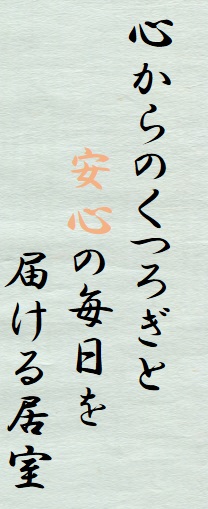 心からのくつろぎと
安心の毎日を
届ける居室